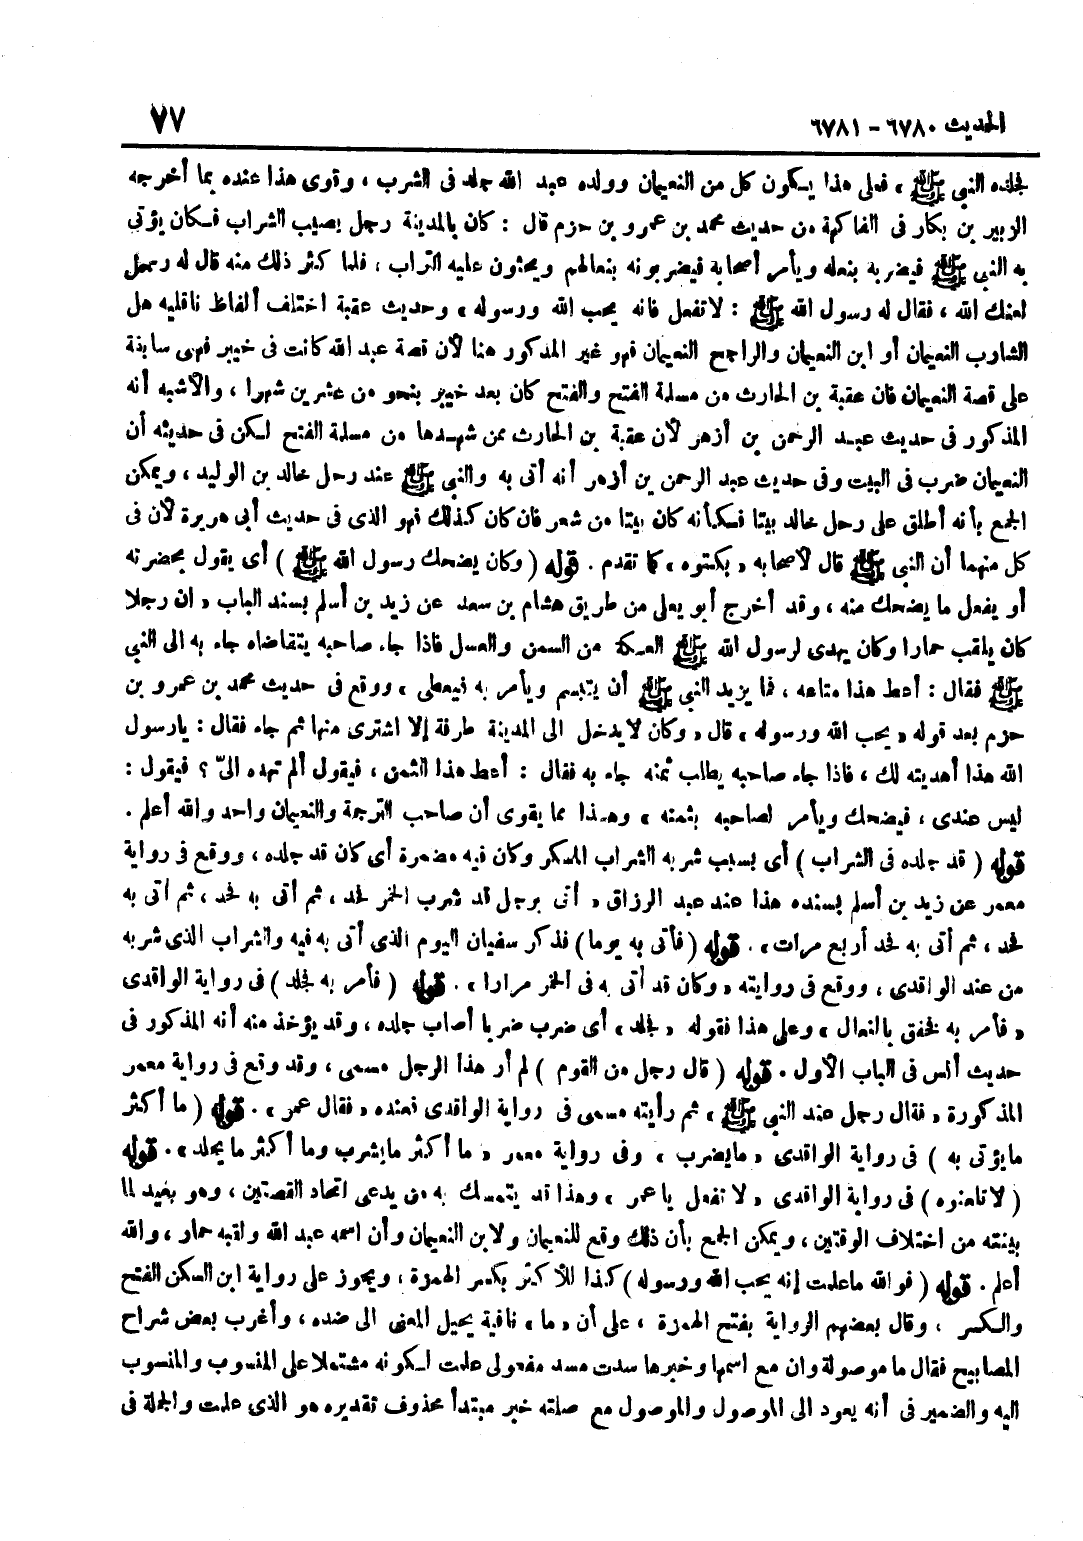 الحديث ٦٧٨٠ - ٦٧٨١ ٧٧
فجلده النبي ﷺ » فعلى هذا يكون كل من النعيمان وولده عبد الله جلد فى الشرب ، وقوى هذا عنده بما أخرجه
الزبير بن بكار فى الفاكهة من حديث محمد بن عمرو بن حزم قال : كان بالمدينة رجل يصيب الشراب فكان يؤتى
به النبي ﷺ فيضربه بنعله ويأمر أصحابه فيضربونه بنعالهم ويحثون عليه التراب ، فلما كثر ذلك منه قال له رجل
لعنك الله ، فقال له رسول الله ﷺ : لا تفعل فانه يحب الله ورسوله » وحديث عقبة اختلف ألفاظ ناقليه هل
الشارب النعيمان أو ابن النعيمان والراجح النعيمان فهو غير المذكور هنا لأن قصة عبد الله كانت فى خيبر فهى سابقة
على قصة النعيمان فان عقبة بن الحارث من مسلمة الفتح والفتح كان بعد خيبر بنحو من عشرين شهرا ، والأشبه أنه
المذكور فى حديث عبد الرحمن بن أزهر لأن عقبة بن الحارث ممن شهدها من مسلمة الفتح لكن فى حديثه أن
النعيمان ضرب فى البيت وفى حديث عبد الرحمن بن أزهر أنه أتى به والنبي ﷺ عند رحل خالد بن الوليد ، ويمكن
الجمع بأنه أطلق على رحل خالد بيتا فكأنه كان بيتا من شعر فان كان كذلك فهو الذى فى حديث أبى هريرة لأن فى
كل منهما أن النبي ﷺ قال لأصحابه « بكتوه » كما تقدم . قوله ( وكان يضحك رسول الله ﷺ ) أى يقول بحضرته
أو يفعل ما يضحك منه ، وقد أخرج أبو يعلى من طريق هشام بن سعد عن زيد بن أسلم بسند الباب « ان رجلا
كان يلقب حمارا وكان يهدى لرسول الله ﷺ العكة من السمن والعسل فاذا جاء صاحبه يتقاضاه جاء به الى النبي
ﷺ فقال : أعط هذا متاعه ، فما يزيد النبي ﷺ أن يتبسم ويأمر به فيعطى » ووقع فى حديث محمد بن عمرو بن
حزم بعد قوله « يحب الله ورسوله » قال « وكان لا يدخل الى المدينة طرفة إلا اشترى منها ثم جاء فقال : يا رسول
الله هذا أهديته لك ، فاذا جاء صاحبه يطلب ثمنه جاء به فقال : أعط هذا الثمن ، فيقول ألم تهده الىّ ؟ فيقول :
ليس عندى ، فيضحك ويأمر لصاحبه بثمنه » وهذا مما يقوى أن صاحب الترجمة والنعيمان واحد والله أعلم .
قوله ( قد جلده فى الشراب ) أى بسبب شربه الشراب المسكر وكان فيه مضمرة أى كان قد جلده ، ووقع فى رواية
معمر عن زيد بن أسلم بسنده هذا عند عبد الرزاق « أتى برجل قد شرب الخمر فحد ، ثم أتى به فحد ، ثم أتى به
فحد ، ثم أتى به فحد أربع مرات » . قوله ( فأتى به يوما ) فذكر سفيان اليوم الذى أتى به فيه والشراب الذى شربه
من عند الواقدى ، ووقع فى روايته « وكان قد أتى به فى الخمر مرارا » . قوله ( فأمر به فجلد ) فى رواية الواقدى
« فأمر به فخفق بالنعال » وعلى هذا فقوله « فجلد » أى ضرب ضربا أصاب جلده ، وقد يؤخذ منه أنه المذكور فى
حديث أنس فى الباب الأول . قوله ( قال رجل من القوم ) لم أر هذا الرجل مسمى ، وقد وقع فى رواية معمر
المذكورة « فقال رجل عند النبي ﷺ » ثم رأيته مسمى فى رواية الواقدى فعنده « فقال عمر » . قوله ( ما أكثر
ما يؤتى به ) فى رواية الواقدى « ما يضرب » وفى رواية معمر « ما أكثر ما يشرب وما أكثر ما يجلد » . قوله
( لا تلعنوه ) فى رواية الواقدى « لا تفعل يا عمر » وهذا قد يتمسك به من يدعى اتحاد القصتين ، وهو بعيد لما
بينته من اختلاف الوقتين ، ويمكن الجمع بأن ذلك وقع للنعيمان ولابن النعيمان وأن اسمه عبد الله ولقبه حمار ، والله
أعلم . قوله ( فوالله ما علمت إنه يحب الله ورسوله ) كذا للأكثر بكسر الهمزة ، ويجوز على رواية ابن السكن الفتح
والكسر ، وقال بعضهم الرواية بفتح الهمزة ، على أن « ما » نافية يحيل المعنى الى ضده ، وأغرب بعض شراح
المصابيح فقال ما موصولة وان مع اسمها وخبرها سدت مسد مفعولى علمت لكونه مشتملا على المنسوب والمنسوب
اليه والضمير فى أنه يعود الى الموصول والموصول مع صلته خبر مبتدأ محذوف تقديره هو الذى علمت والجملة فى